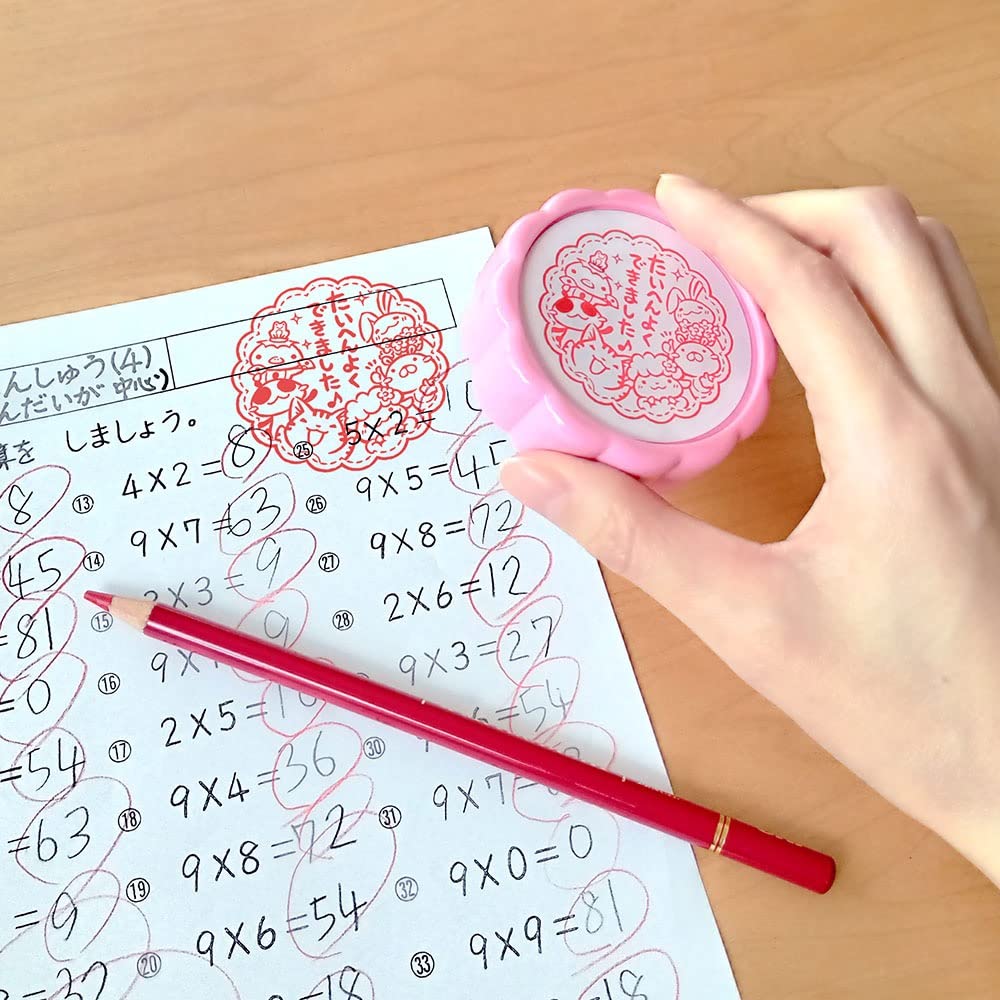 たいへんよく
できました♪
たいへんよく
できました♪
んしゅう(4)
んだいが中心)
算を しましょう。
8 ⑬ 4×2=8 ㉕ 5×2=10
45 ⑭ 9×7=63 ㉖ 9×5=45
=81 ⑮ ×3=9 ㉗ 9×8=72
=0 ⑯ 9× 9 ㉘ 2×6=12
=54 ⑰ 2×5=10 9×3=27
=63 ⑱ 9×4=36 ㉚ 6=54
=9 ⑲ 9×8=72 ㉛ 9×7=
⑳ 9×6=54 ㉜ 9×0=0
=18 ㉝ 9×9=81
=18